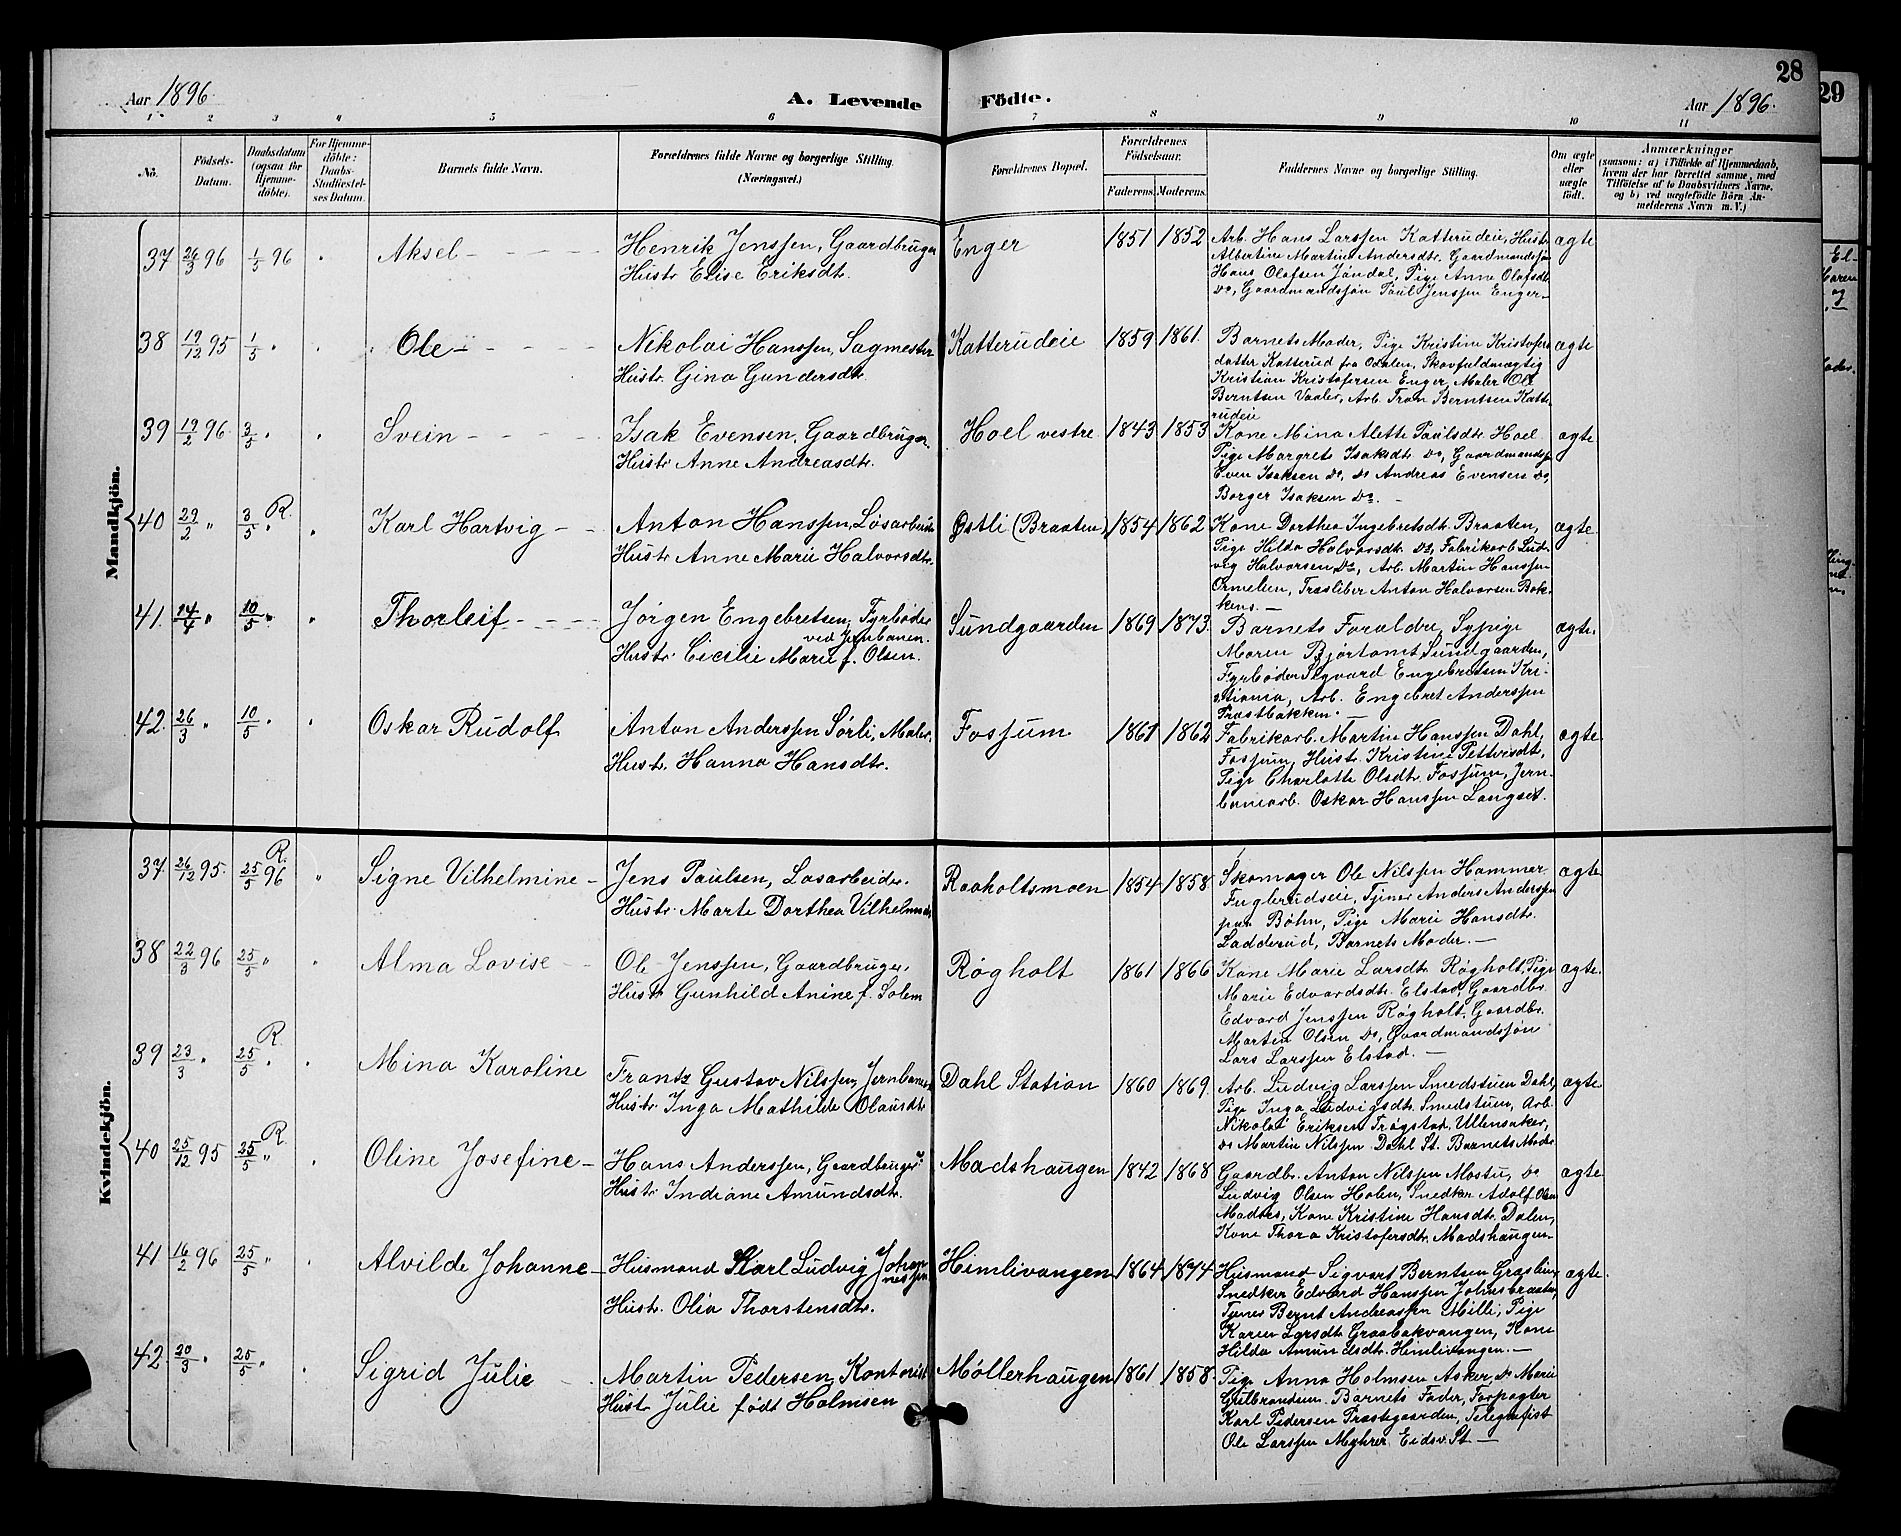 28
29
Aar 1896.
A. Levende Födte.
Aar 1896.
1 2 3 4 5 6 7 8 9 10 11
No.
Födsels-Datum.
Daabsdatum (ogsaa for Hjemme-döbte).
For Hjemme-döbte: Daabs-Stadfæstel-ses Datum.
Barnets fulde Navn.
Forældrenes fulde Navne og borgerlige Stilling. (Næringsvei.)
Forældrenes Bopæl.
Forældrenes Födselsaar.
Faderens. Moderens.
Faddernes Navne og borgerlige Stilling.
Om ægte eller uægte födt.
Anmærkninger
(saasom: a) i Tilfælde af Hjemmedaab,
hvem der har forrettet samme, med
Tilföielse af to Daabsvidners Navne,
og b) ved uægtefödte Börn An-
melderens Navn m. V.)
Mandkjön.
37 26/3 96 1/5 96 Aksel
Henrik Jenssen, Gaardbruger
Hustr Elise Eriksdt.
Enger 1851 1852
Arb. Hans Larssen Katterudeie, Hustr
Albertine Martine Andersdtr. Gaardmandssøn
Hans Olafsen Jøndal, Pige Anne Olafsdt
Do, Gaardmandssøn Paul Jenssen Enger
ægte
38 19/12 95 1/5 " Ole
Nikolai Hanssen, Sagmester
Hustr. Gina Gundersdtr.
Katterudeie 1859 1861.
Barnets Moder, Pige Kristine Kristofers
datter Katterud fra Odalen, Skovfuldmægtig
Kristian Kristofersen Enger, Maler Ole
Berntsen Vaaler, Arb. Tron Berntsen Katte-
rudeie
ægte
39 19/2 96. 3/5 " Svein
Isak Evensen, Gaardbruger
Hustr Anne Andreasdtr.
Hoel vestre. 1843 1853
Kone Mina Alette Paulsdtr. Hoel
Pige Margrete Isaksdtr Do, Gaardmands
Even Isaksen Do, Do Andreas Evensen Do
Borger Isaksen Do.
ægte
40 29/2 " 3/5 " R. Karl Hartvig
Anton Hanssen, Løsarbeider
Hustr Anne Marie Halvorsdtr.
Østli (Braaten) 1854 1862
Kone Dorthea Ingebretsdtr. Braaten,
Pige Hilda Halvorsdtr. Do, Fabrikarb. Lud-
vig Halvorsen Do, Arb. Martin Hanssen
Ormelien, Træsliber Anton Halvorsen Bak-
kens.
ægte.
41. 14/4 " 10/5 " Thorleif
Jørgen Engebretsen, Fyrbøder
ved Jernbanen.
Hustr Cecilie Marie f. Olsen.
Sundgaarden 1869 1873.
Barnets Forældre, Sypige
Maren Bjørtomt Sundgaarden,
Fyrbøder Sigvard Engebretsen Kri-
stiania, Arb. Engebret Anderssen
Præstbakken.
ægte.
42. 26/3 " 10/5 " Oskar Rudolf
Anton Anderssen Sørli, Maler.
Hustr. Hanna Hansdtr.
Fossum 1861 1862
Fabrikarb. Martin Hanssen Dahl,
Fossum, Hustr. Kristine Pettersdt.
Pige Charlotte Olsdtr. Fossum, Jern-
banearb. Oskar Hanssen Langset.
ægte
Kvindekjön.
37. 26/12 95. 25/5 96 R. Signe Vilhelmine
Jens Paulsen, Løsarbeider.
Hustr. Marte Dorthea Vilhelmsdt
Raaholtsmoen 1854 1858
Skomager Ole Nilssen Hammer
Fuglerudseie, Tjener Anders Anderssen
paa Bøhn, Pige Marie Hansdtr.
Ladderud, Barnets Moder.
ægte
38 22/3 96 25/5 " Alma Lovise
Ole Jenssen, Gaardbruger.
Hustr Gunhild Anine f. Solem
Røgholt 1861 1866
Kone Marie Larsdtr. Røgholt, Pige
Marie Edvardsdtr. Elstad, Gaardbr.
Edvard Jenssen Røgholt, Gaardbr.
Martin Olsen Do, Gaardmandssøn
Lars Larssen Elstad.
ægte.
39 23/3 " 25/5 " R. Mina Karoline
Frantz Gustav Nilssen, Jernbane
Hustr. Inga Mathilde Olausdt
Dahl Station 1860 1869.
Arb. Ludvig Larssen Smedstuen Dahl,
Pige Inga Ludvigsdtr. Smedstuen, Arb.
Nikolai Eriksen Trøgstad, Ullensaker,
Do Martin Nilssen Dahl St. Barnets Moder
ægte
40 25/12 95 25/5 " R. Oline Josefine
Hans Anderssen, Gaardbruger
Hustr. Indiane Amundsdtr.
Madshaugen 1842 1868
Gaardbr. Anton Nilssen Mostu, Do
Ludvig Olsen Holen, Snedker Adolf Olsen
Madses, Kone Kristine Hansdtr. Dalen,
Kone Thora Kristofersdtr. Madshaugen
ægte
41 16/2 96 25/5 " Alvilde Johanne
Husmand Karl Ludvig Johan-
nessen
Hustr. Olea Thorstensdtr.
Himlivangen 1864 1874
Husmand Sigvart Berntsen Grasliun
Snedker Edvard Hanssen Johnsbraaten,
Tjener Bernt Andreassen Milli, Pige
Karen Larsdtr. Graabakvangen, Kone
Hilda Amundsdtr. Himlivangen.
ægte.
42 30/3 " 25/5 " Sigrid Julie
Martin Pedersen, Kontorist
Hustr Julie født Holmsen
Møllerhaugen 1861 1858.
Pige Anna Holmsen Asker, Do Marie
Gulbrandsen. Barnets Fader, Forpagter
Karl Pedersen Præstegaarden, Telegrafist
Ole Larssen Myhrer Eidsv. St.